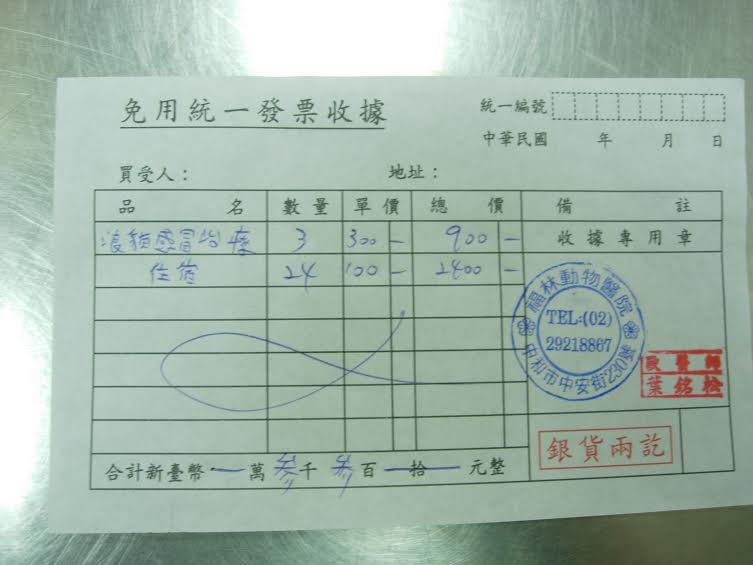 免用統一發票收據
統一編號
中華民國 年 月 日
買受人： 地址：
品名 數量 單價 總價 備註
浪貓感冒治療 3 300 — 900 — 收據專用章
住宿 24 100 — 2400 —
福林動物醫院
TEL:(02)
29218867
中和市中安街230號
獸醫師
葉銘
合計新臺幣 — 萬 參 千 參 百 — 拾 — 元整
銀貨兩訖